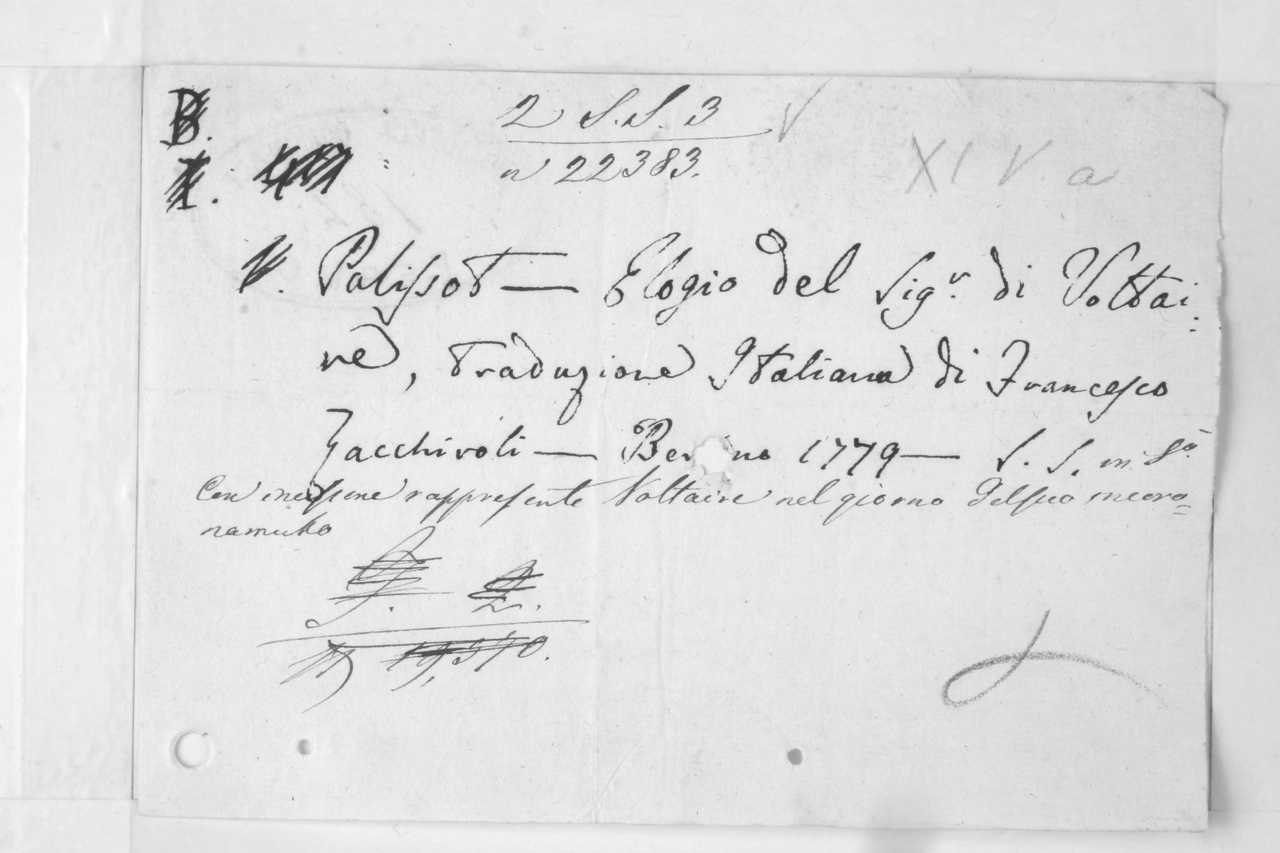 B.
2 S.S. 3
n 22383.
XIV a
V. Palissot — Elogio del Sigr. di Voltai:
re, traduzione Italiana di Francesco
Zacchiroli — Ber no 1779 — S. S. in 8o
Con incisione rappresente Voltaire nel giorno incoro=
namento
19,510.